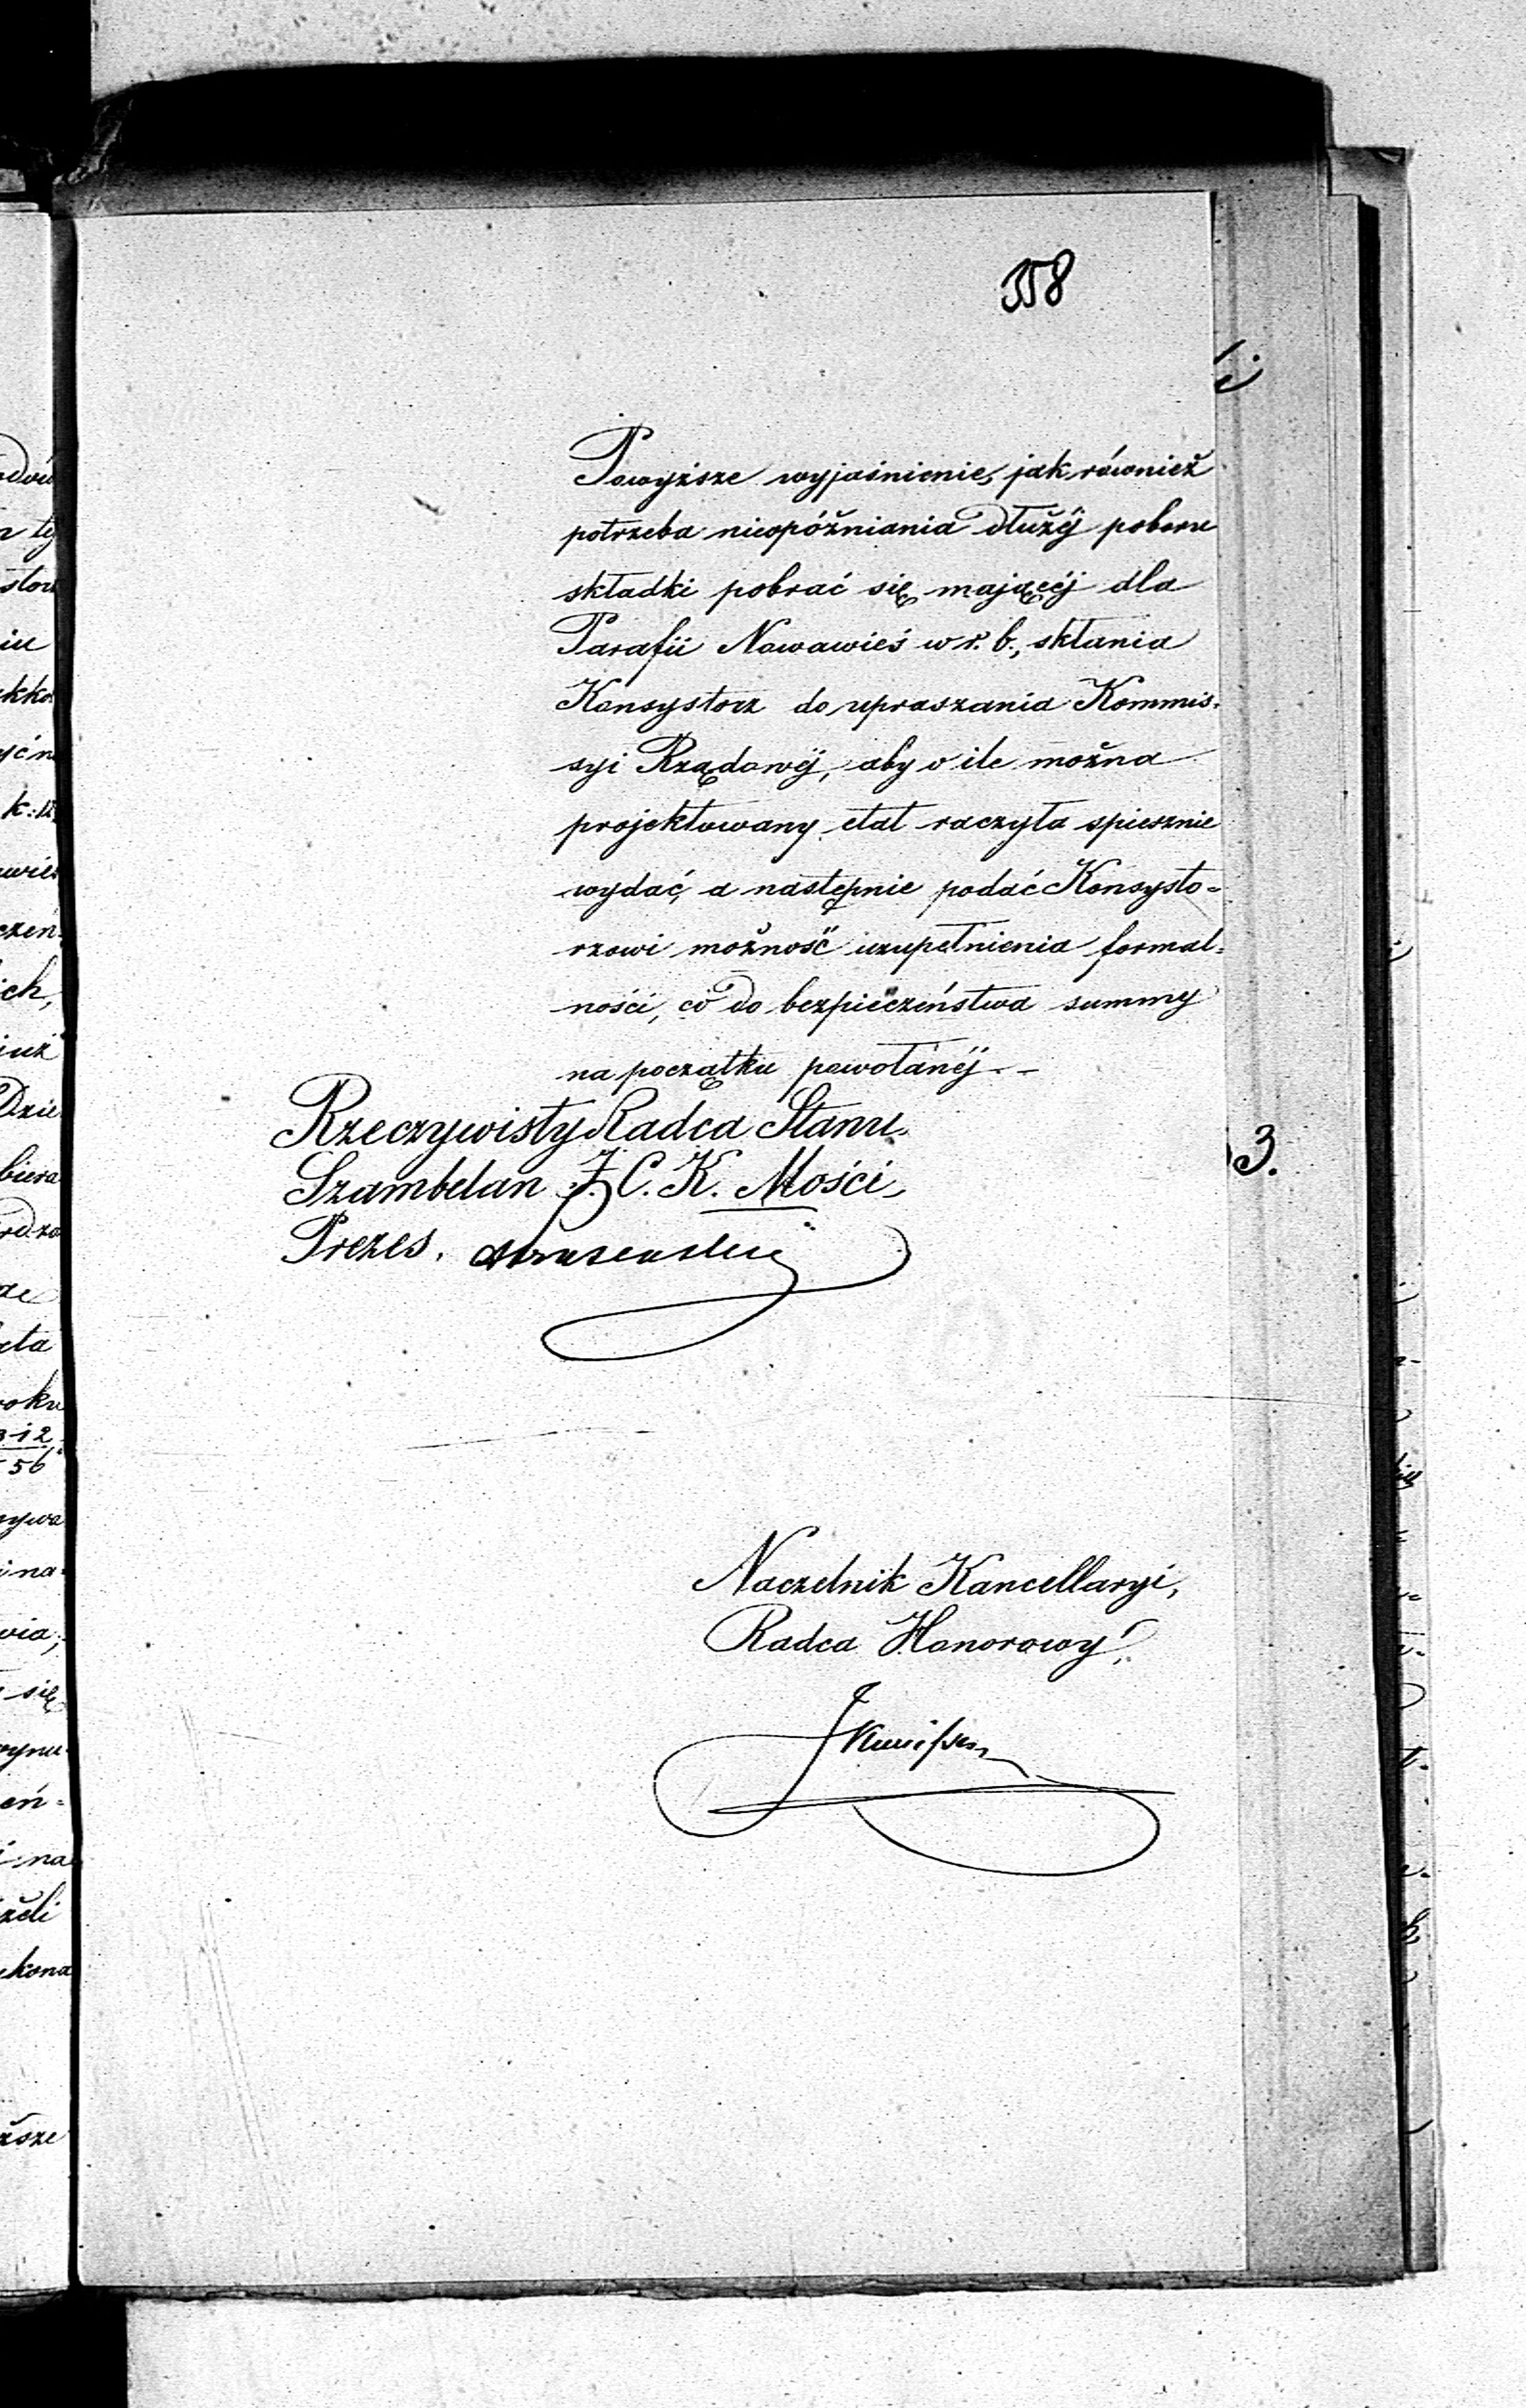 358
Powyższe wyjaśnienie, jak również
potrzeba nieopóźniania dłużéj poboru
składki pobrać się mającéj dla
Parafii Nowawieś w r. b., skłania
Konsystorz do upraszania Kommis-
syi Rządowéj, aby o ile można
projektowany etat raczyła spiesznie
wydać, a następnie podać Konsysto-
rzowi możność uzupełnienia formal-
ności, co do bezpieczeństwa summy
na początku powołanéj. -
Rzeczywisty Radca Stanu,
Szambelan J. C. K. Mości,
Prezes.
Naczelnik Kancellaryi,
Radca Honorowy,
3.